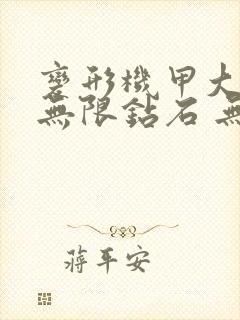 變形機甲大
無限鉆石 無
蔣平安